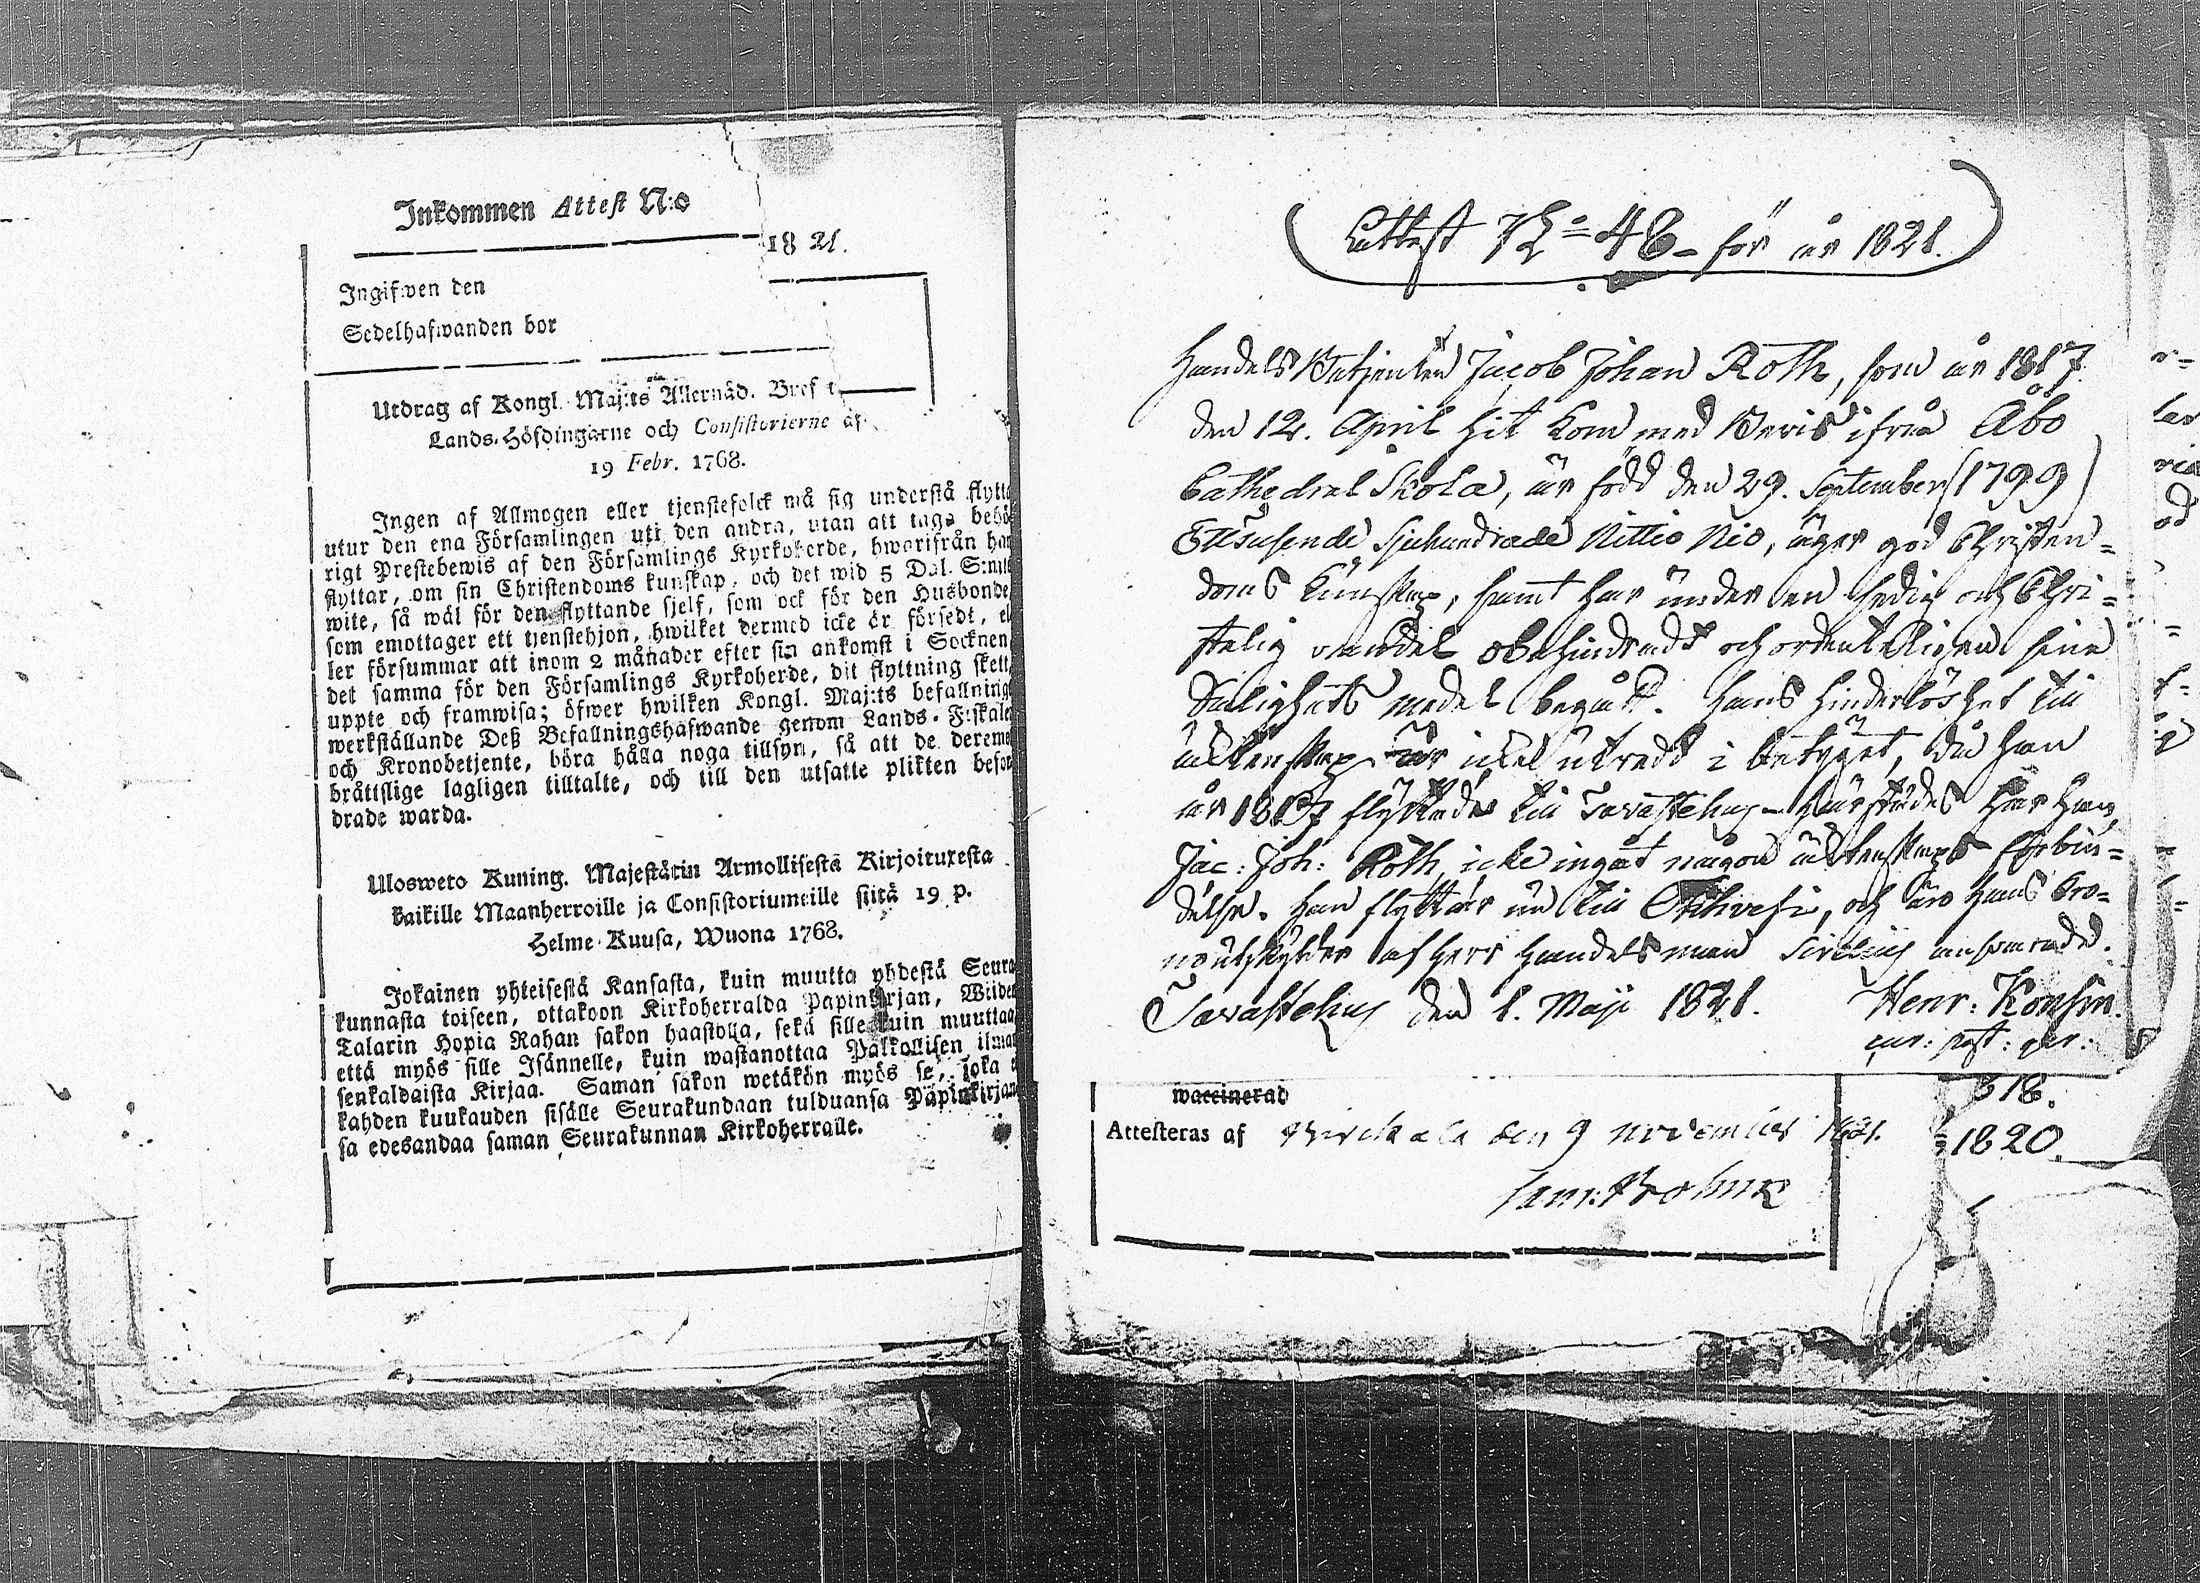 Inkommen Attest N:o
1821.
Ingifwen den
Sedelhafwanden bor
Utdrag af Kongl. Maj:ts Allernåd. Bref t
Lands-Höfdingarne och Consistorierne af
19 Febr. 1768.
Ingen af Allmogen eller tjenstefolck må sig understå flytta
utur den ena Församlingen uti den andra, utan att taga behö-
rigt Prestebewis af den Församlings Kyrkoherde, hwarifrån han
flyttar, om sin Christendoms kunskap, och det wid 5 Dal. S:mts
wite, så wäl för den flyttande sjelf, som ock för den Husbonde,
som emottager ett tjenstehjon, hwilket dermed icke är försedt, el-
ler försummar att inom 2 månader efter sin ankomst i Socknen
det samma för den Församlings Kyrkoherde, dit flyttning skett,
uppte och framwisa; öfwer hwilken Kongl. Maj:ts befallning
werkställande Deß Befallningshafwande genom Lands-Fiskaler
och Kronobetjente, böra hålla noga tillsyn, så att de deremot
bråttslige lagligen tilltalte, och till den utsatte plikten befor-
drade warda.
Ulosweto Kuning. Majestätin Armollisesta Kirjoituxesta
kaikille Maanherroille ja Consistoriumeille siitä 19 p.
Helme-Kuusa, Wuona 1768.
Jokainen yhteisestä Kansasta, kuin muutta yhdestä Seura-
kunnasta toiseen, ottakoon Kirkoherralda Papinkirjan, Wiiden
Talarin Hopia Rahan sakon haastolla, sekä sille kuin muuttaa
että myös sille Isännelle, kuin wastanottaa Palkollisen ilman
senkaldaista Kirjaa. Saman sakon wetäkön myös se, joka ei
kahden kuukauden sisälle Seurakundaan tulduansa Papinkirjan-
sa edesandaa saman Seurakunnan Kirkoherralle.
Attest No 48 för år 1821.
Handels Betjenten Jacob Johan Roth, som år 1817
den 12. April hit kom med Bevis ifrån Åbo
Cathedral Skola, är född den 29. September (1799)
Ettusende Sjuhundrade Nittio Nio, äger god Christen=
doms Kunskap, samt har under en sedig och Chri=
stelig vandel obehindradt och ordenteligen sine
Salighets medel begått. Hans hinderlöshet till
äktenskap är icke utredt i betyget, då han
år 1817 flyttade till Tavastehus - härstädes har han,
Jac: Joh: Roth, icke ingåt någon äktenskaps förbin=
delse. Han flyttar nu till Orihvesi, och äro hans Kro=
noutskylder af Herr Handelsman Sirelius ansvarade.
Tavastehus den 1. Maji 1821. Henr: Konsin.
cur: past: ger:
waccinerad
818.
Attesteras af Birckala den 9 november 1821.
1820.